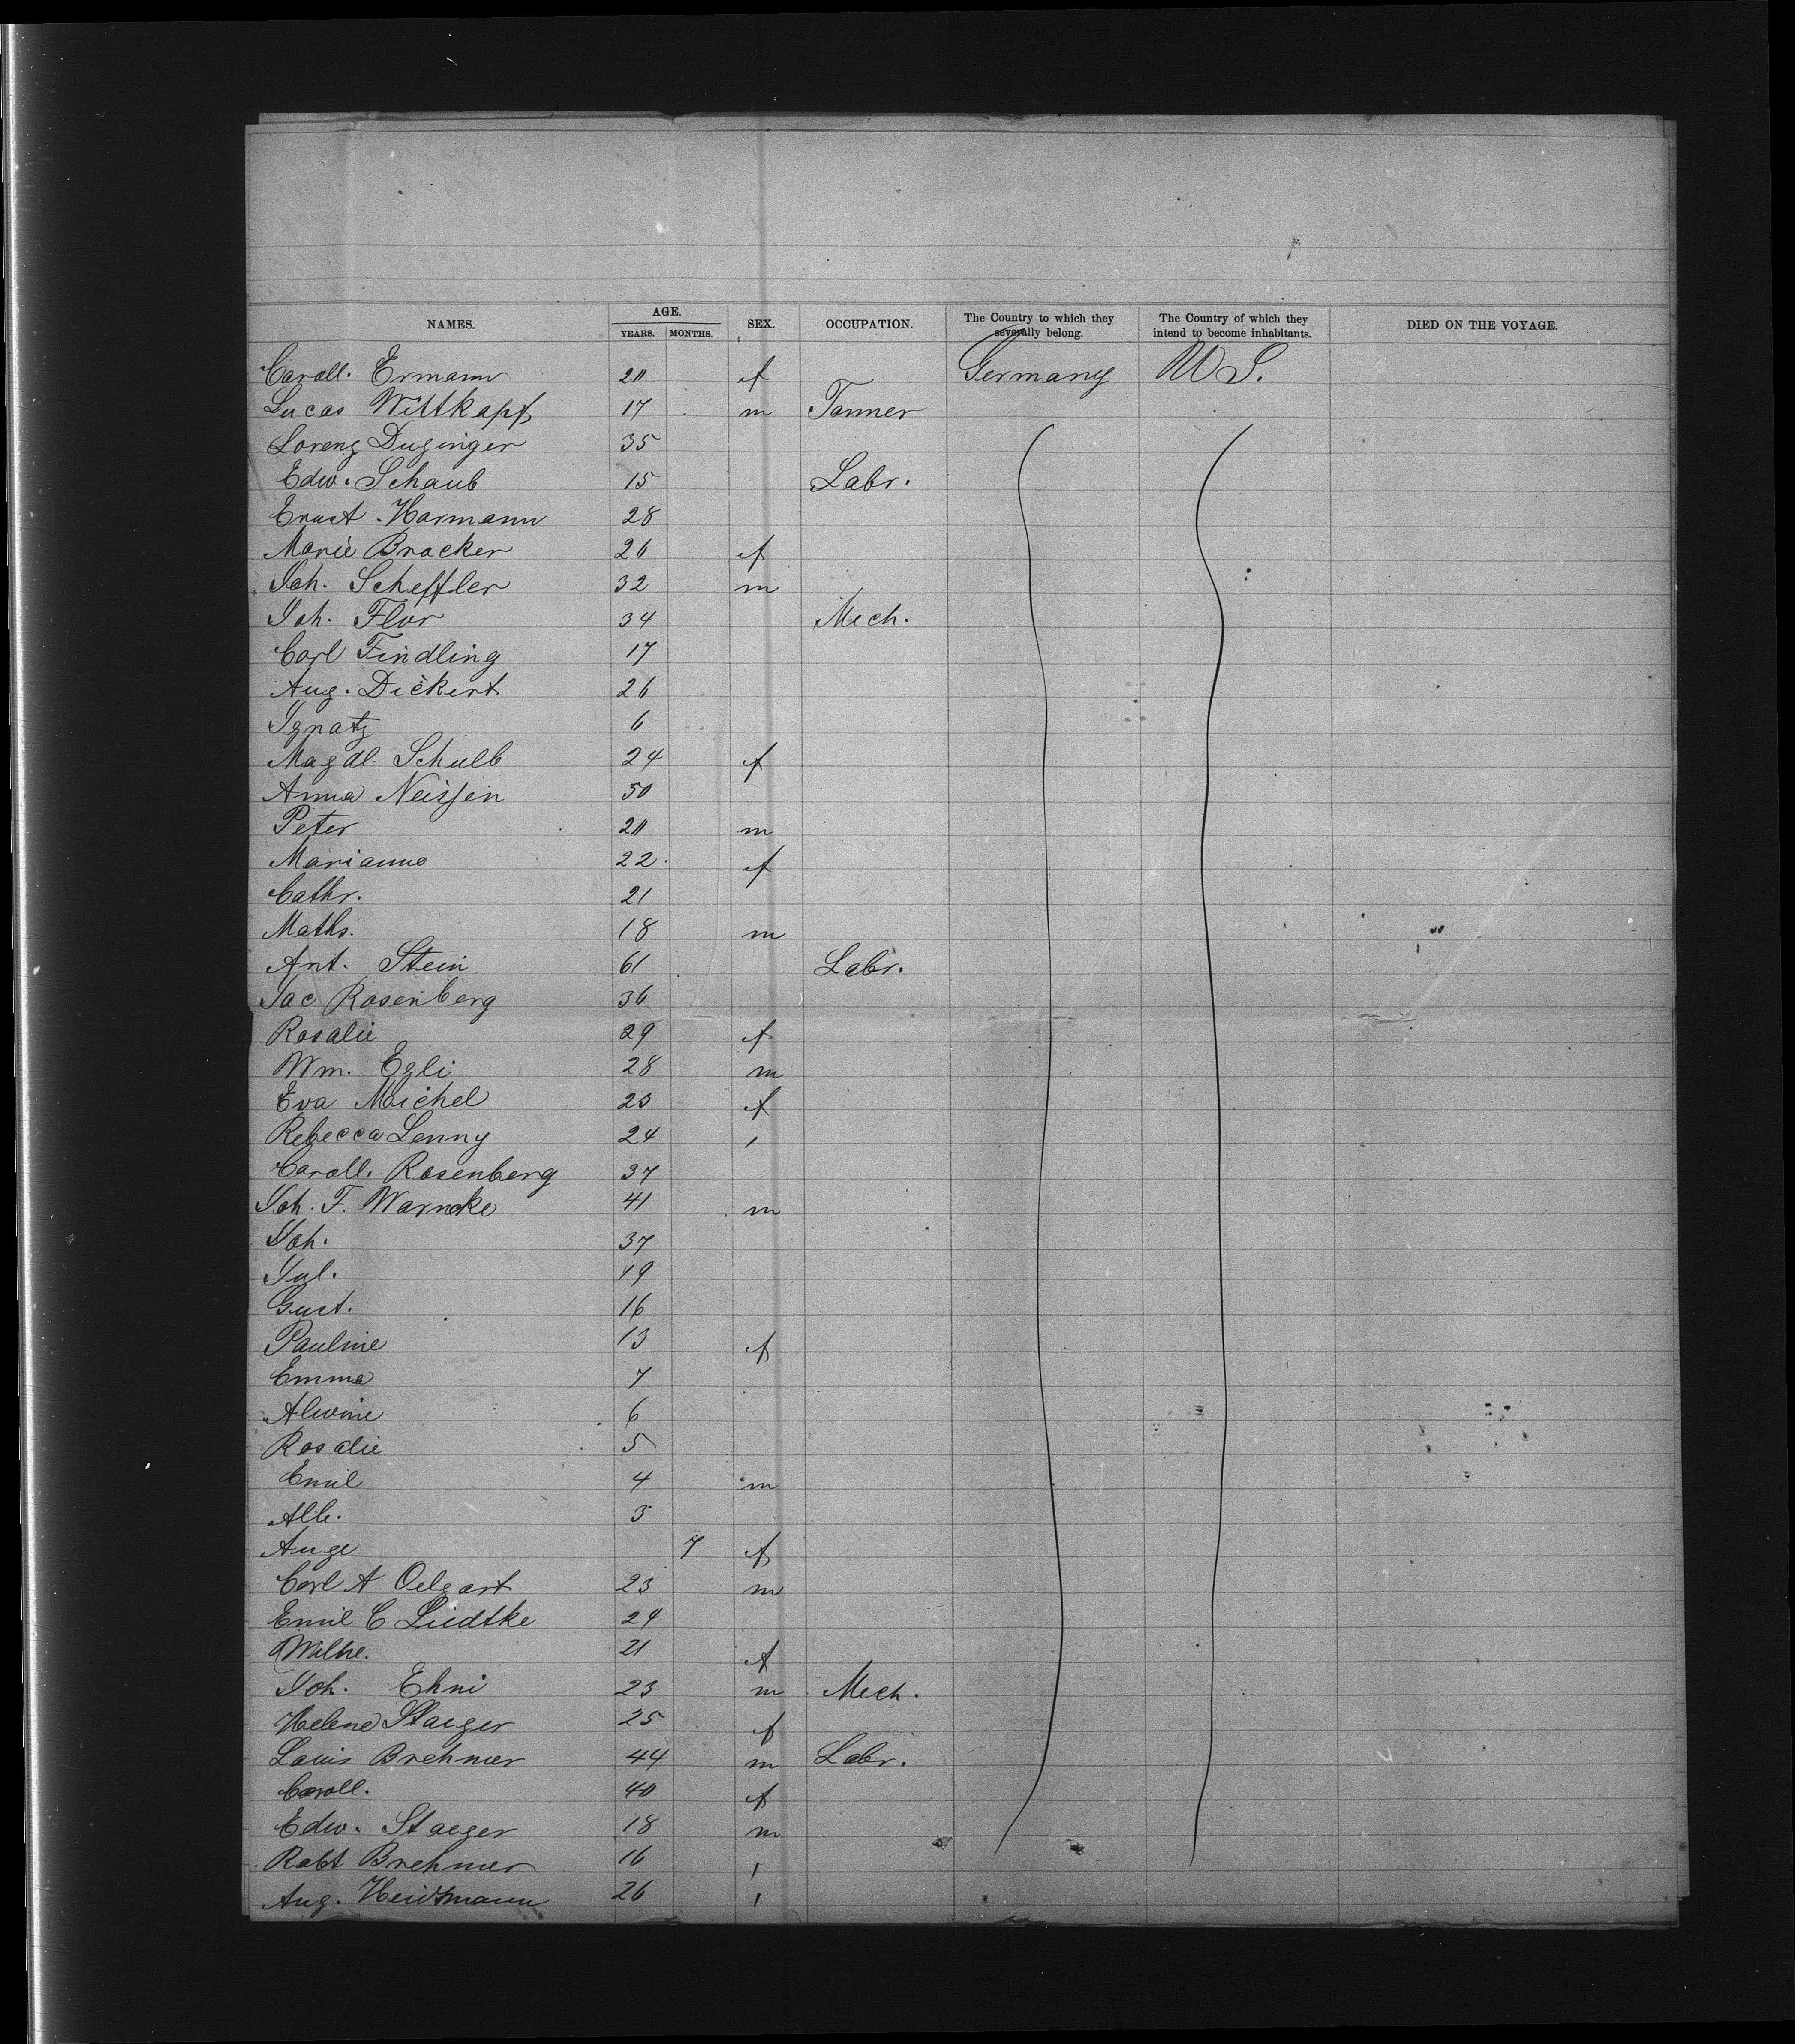 NAMES. AGE. YEARS. MONTHS. SEX. OCCUPATION. The Country to which they severally belong. The Country of which they intend to become inhabitants. DIED ON THE VOYAGE.
Caroll. Ermann 20 f Germany U S.
Lucas Wittkapf 17 m Tanner
Lorenz Duginger 35
Edw. Schaub 15 Labr.
Ernst Harmann 28
Marie Bracker 26 f
Joh. Scheffler 32 m
Joh. Flor 34 Mech.
Carl Findling 17
Aug. Dickert 26
Ignatz 6
Magdl. Schulb 24 f
Anna Neissen 50
Peter 20 m
Marianne 22 f
Cathr. 21
Maths. 18 m
Ant. Stein 61 Labr.
Jac Rosenberg 36
Rosalie 29 f
Wm. Egli 28 m
Eva Michel 23 f
Rebecca Lenny 24 "
Caroll. Rosenberg 37
Joh. F. Warncke 41 m
Joh. 37
Jul. 19
Gust. 16
Pauline 13 f
Emma 7
Alwine 6
Rosalie 5
Emil 4 m
Alb. 3
Auge 7 f
Carl A Oelgart 23 m
Emil C Liedtke 24
Wilhe. 21 f
Joh. Ehni 23 m Mech.
Helene Staeger 25 f
Louis Brehmer 44 m Labr.
Caroll. 40 f
Edw. Staeger 18 m
Robt Brehmer 16 "
Aug. Heidtmann 26 "